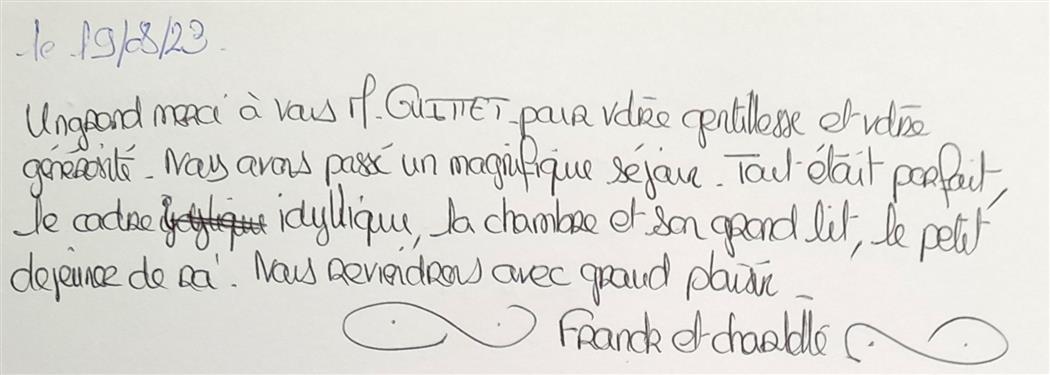 le 19/08/23.
Un grand merci à vous M. GUITTET pour votre gentillesse et votre
générosité. Nous avons passé un magnifique séjour. Tout était parfait,
le cadre idyllique, la chambre et son grand lit, le petit
dejeuner de roi. Nous reviendrons avec grand plaisir
Franck et